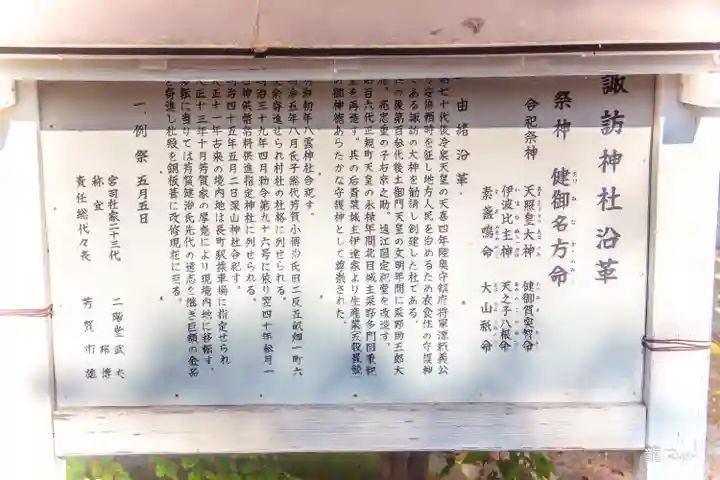 諏訪神社沿革
祭神 健御名方命
合祀祭神 天照皇大神 健御賀突智命
伊波比主神 天之子八根命
素盞鳴命 大山祇命
由緒沿革
七十代後冷泉天皇の天喜四年陸奥守鎮府将軍源頼義公
安倍頼時を征し地方人民を治めるため衣食住の守護神
である諏訪の大神を勧請し創建した社である。
の後第百参代後土御門天皇の文明年間に粟野助五郎大
忠重の子右京之助。遠江固定祀堂を改造す。
百六代正親町天皇の永禄年間北目城主粟野多門国重祀
を再造す。其の后青葉城主伊達家より生産業
の御神徳あらたかな守護神として尊崇された。
明治初年八雲神社合祀す。
治五年八月氏子総代芳賀小傳治氏田二反五畝畑一町六
余寄進せられ村社の社格に列せられる。
治三十九年四月勅令第九十六号に依り翌四十年弐月一
神饌幣帛料供進指定神社に列せられる。
治四十五年五月二日深山神社合祀す。
大正十一年古来の境内地は長町駅操車場に指定せられ
大正十三年十月芳賀家の厚意により現境内地に移転す。
に当りては芳賀健治氏先代の遺志を継ぎ巨額の金品
を寄進し社殿を銅板葺に改修現在に至る。
一、例祭 五月五日
宮司社家二十三代 二階堂武夫
称宜 邦博
責任総代々表 芳賀市雄